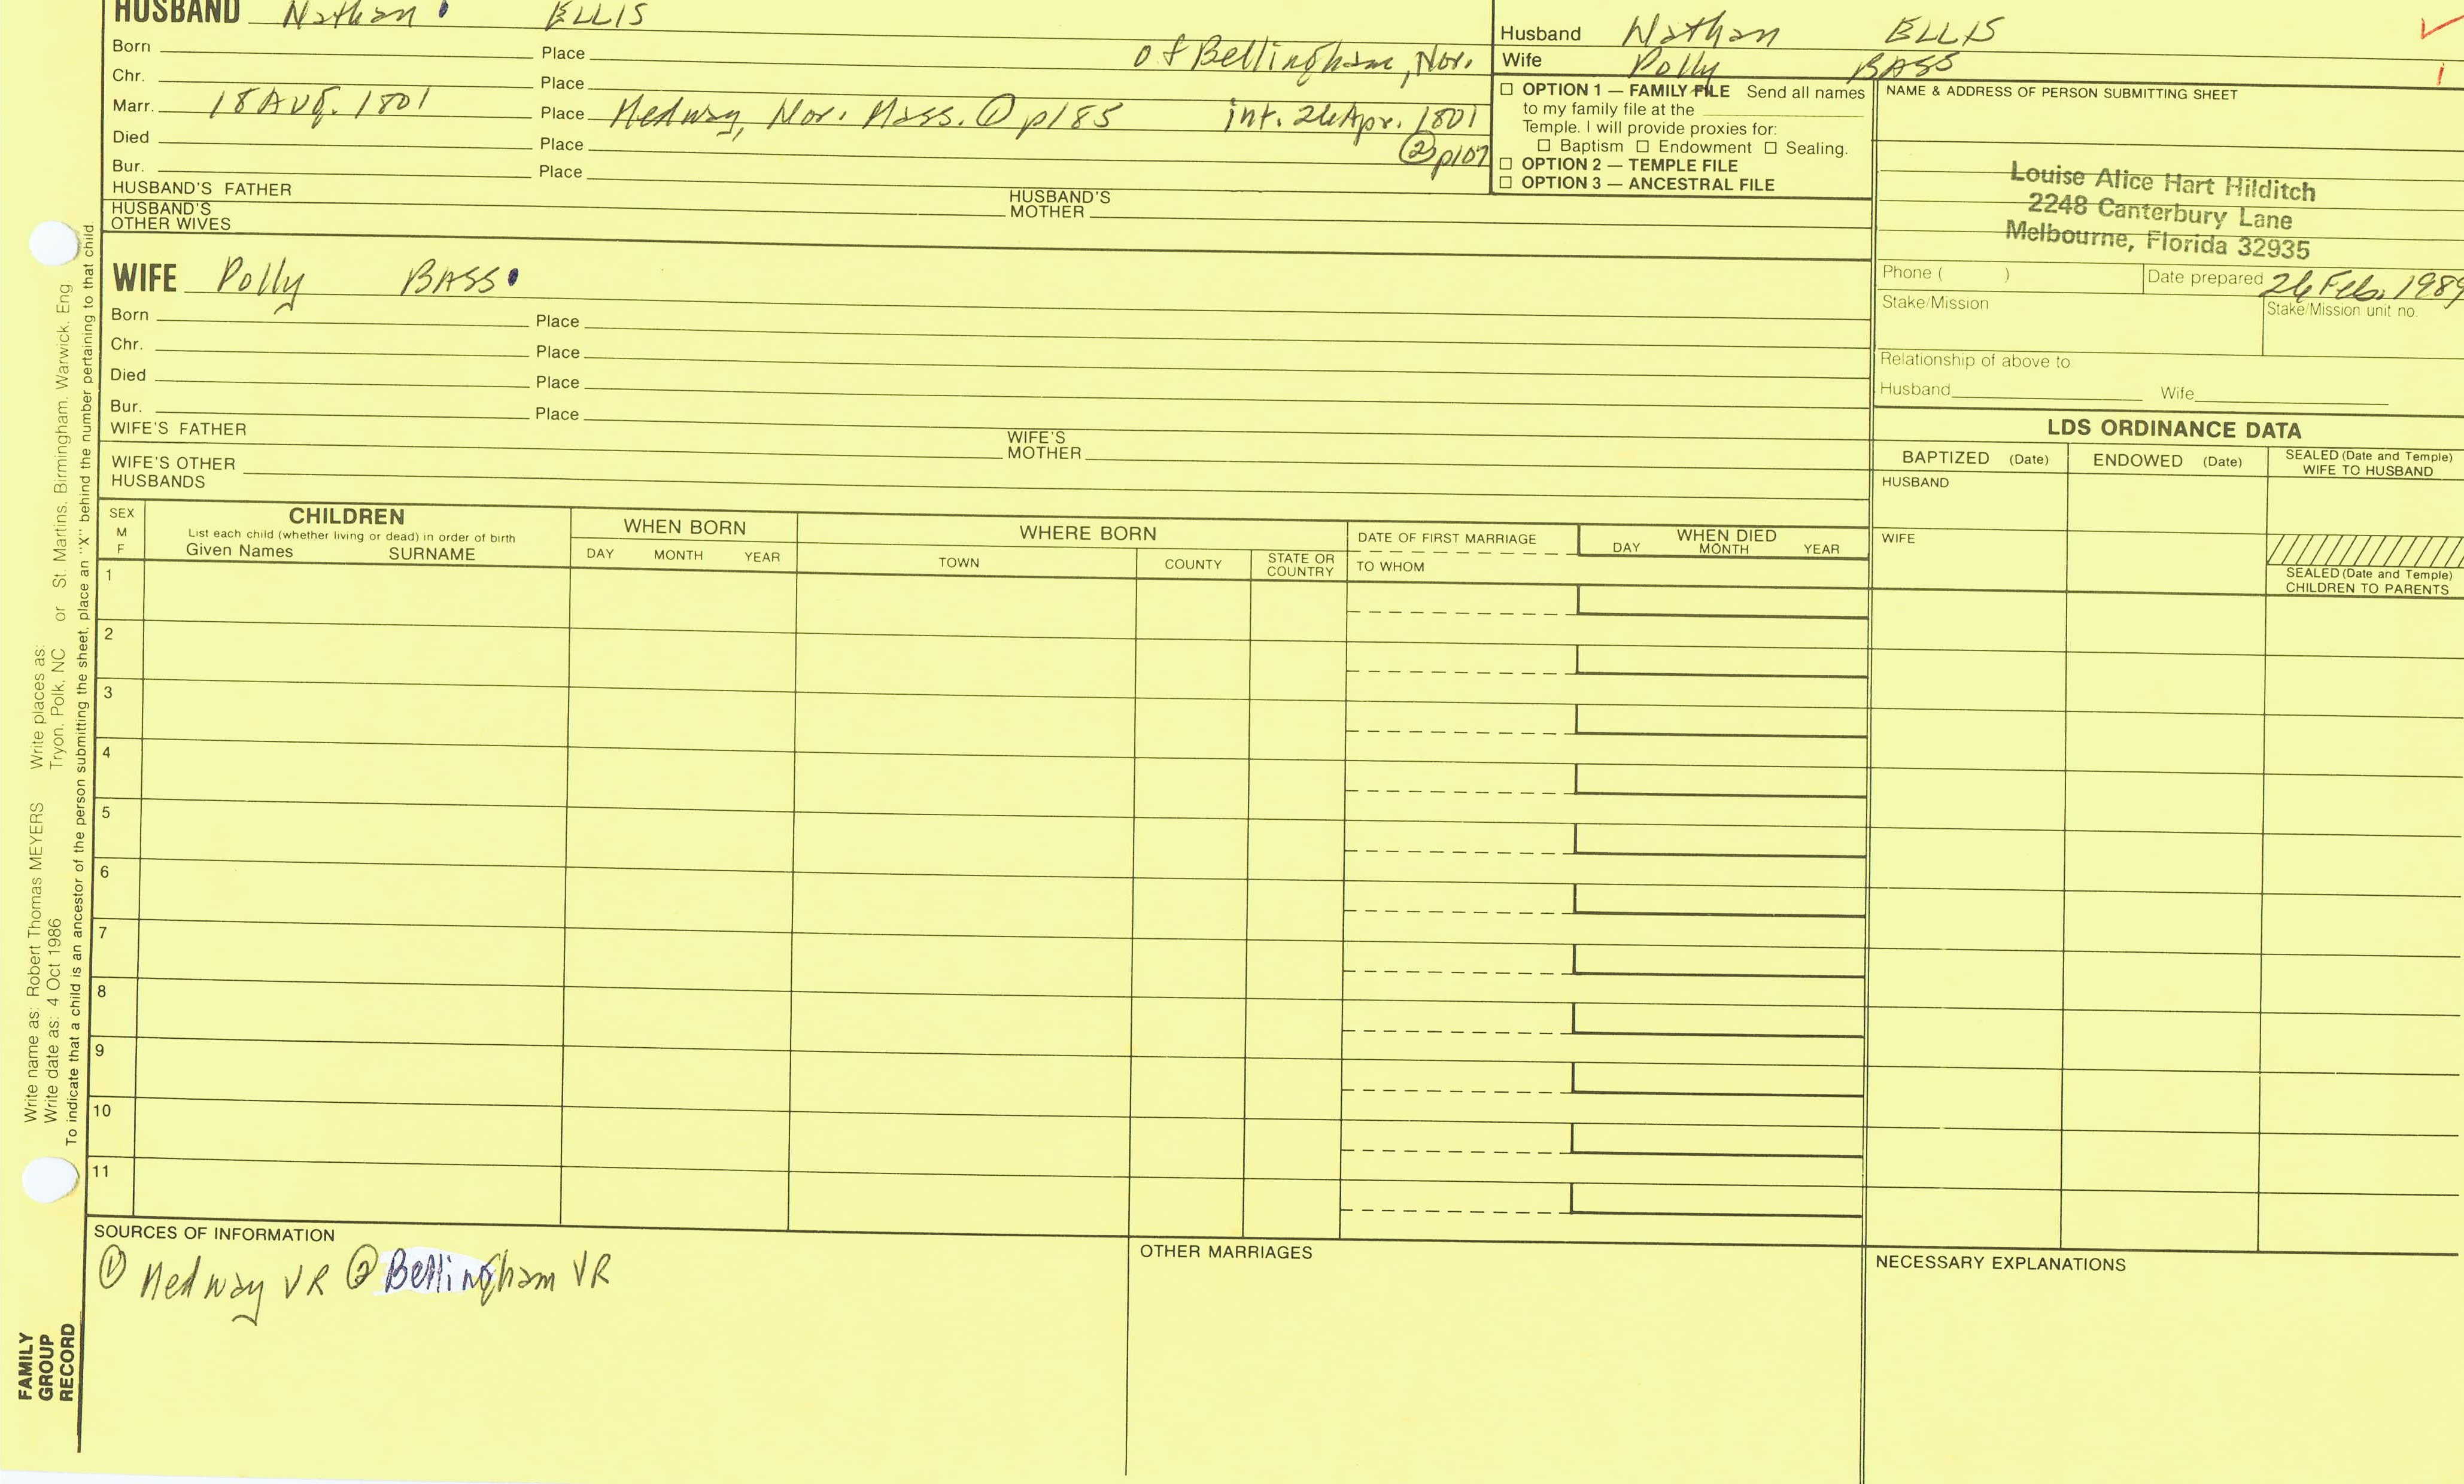 HUSBAND Nathan ELLIS
Born Place of Bellingham, Nor.
Chr. Place
Marr. 18 Aug. 1801 Place Medway, Nor. Mass. ① p185 int. 26 Apr. 1801
② p107
Died Place
Bur. Place
HUSBAND'S FATHER HUSBAND'S MOTHER
HUSBAND'S OTHER WIVES
Husband Nathan ELLIS
Wife Polly BASS
☐ OPTION 1 — FAMILY FILE Send all names
to my family file at the
Temple. I will provide proxies for:
☐ Baptism ☐ Endowment ☐ Sealing.
☐ OPTION 2 — TEMPLE FILE
☐ OPTION 3 — ANCESTRAL FILE
NAME & ADDRESS OF PERSON SUBMITTING SHEET
Louise Alice Hart Hilditch
2248 Canterbury Lane
Melbourne, Florida 32935
Phone ( ) Date prepared 26 Feb. 1989
Stake/Mission Stake/Mission unit no.
Relationship of above to:
Husband Wife
WIFE Polly BASS
Born Place
Chr. Place
Died Place
Bur. Place
WIFE'S FATHER WIFE'S MOTHER
WIFE'S OTHER HUSBANDS
LDS ORDINANCE DATA
BAPTIZED (Date) ENDOWED (Date) SEALED (Date and Temple) WIFE TO HUSBAND
HUSBAND
WIFE
SEALED (Date and Temple)
CHILDREN TO PARENTS
SEX M F
CHILDREN
List each child (whether living or dead) in order of birth
Given Names SURNAME
WHEN BORN
DAY MONTH YEAR
WHERE BORN
TOWN COUNTY STATE OR COUNTRY
DATE OF FIRST MARRIAGE
TO WHOM
WHEN DIED
DAY MONTH YEAR
1
2
3
4
5
6
7
8
9
10
11
SOURCES OF INFORMATION
① Medway VR ② Bellingham VR
OTHER MARRIAGES
NECESSARY EXPLANATIONS
FAMILY
GROUP
RECORD
Write name as: Robert Thomas MEYERS Write places as:
Write date as: 4 Oct 1986 Tryon, Polk, NC or St. Martins, Birmingham, Warwick, Eng.
To indicate that a child is an ancestor of the person submitting the sheet, place an "X" behind the number pertaining to that child.